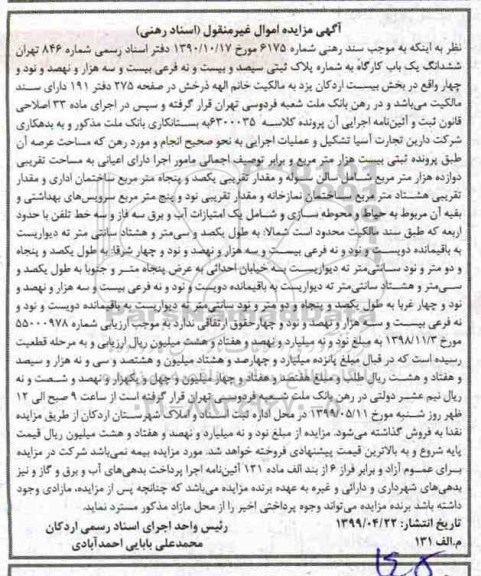 آگهی مزایده اموال غیرمنقول (اسناد رهنی)
نظر به اینکه به موجب سند رهنی شماره ۶۱۷۵ مورخ ۱۳۹۰/۱۰/۱۷ دفتر اسناد رسمی شماره ۸۴۶ تهران
ششدانگ یک باب کارگاه به شماره پلاک ثبتی سیصد و بیست و نه فرعی بیست و سه هزار و نهصد و نود و
چهار واقع در بخش بیست اردکان یزد به مالکیت خانم الهه ذرخش در صفحه ۲۷۵ دفتر ۱۹۱ دارای سند
مالکیت می‌باشد و در رهن بانک ملت شعبه فردوسی تهران قرار گرفته و سپس در اجرای ماده ۳۳ اصلاحی
قانون ثبت و آئین‌نامه اجرایی آن پرونده کلاسه ۶۳۰۰۰۳۵ به بستانکاری بانک ملت مذکور و به بدهکاری
شرکت دارین تجارت آسیا تشکیل و عملیات اجرایی به نحو صحیح انجام و مورد رهن که مساحت عرصه آن
طبق پرونده ثبتی بیست هزار متر مربع و برابر توصیف اجمالی مامور اجرا دارای اعیانی به مساحت تقریبی
دوازده هزار متر مربع شامل سالن سوله و مقدار تقریبی یکصد و پنجاه متر مربع ساختمان اداری و مقدار
تقریبی هشتاد متر مربع ساختمان نمازخانه و مقدار تقریبی نود و پنج متر مربع سرویس‌های بهداشتی و
بقیه آن مربوط به حیاط و محوطه سازی و شامل یک امتیازات آب و برق سه فاز و سه خط تلفن با حدود
اربعه که طبق سند مالکیت محدود است شمالا: به طول یکصد و سی‌متر و هشتاد سانتی متر ته دیواریست
به باقیمانده دویست و نود و نه فرعی بیست و سه هزار و نهصد و نود و چهار شرقا: به طول یکصد و پنجاه
و دو متر و نود سانتی‌متر ته دیواریست به خیابان احداثی به عرض پنجاه متر و جنوبا به طول یکصد و
سی‌متر و هشتاد سانتی‌متر ته دیواریست به باقیمانده دویست و نود و نه فرعی بیست و سه هزار و نهصد و
نود و چهار غربا به طول یکصد و پنجاه و دو متر و نود سانتی‌متر ته دیواریست به باقیمانده دویست و نود و
نه فرعی بیست و سه هزار و نهصد و نود و چهار حقوق ارتفاقی ندارد به موجب ارزیابی شماره ۵۵۰۰۰۹۷۸
مورخ ۱۳۹۸/۱۱/۳ به مبلغ نود و نه میلیارد و نهصد و هفتاد و هشت میلیون ریال ارزیابی و به مرحله قطعیت
رسیده است که در قبال مبلغ پانزده میلیارد و چهارصد و هشتاد میلیون و هشتصد و سی و نه هزار و سیصد
و هفتاد و هشت ریال طلب و مبلغ هفتصد و هفتاد و چهار میلیون و چهل و یکهزار و نهصد و شصت و نه
ریال نیم عشر دولتی در رهن بانک ملت شعبه فردوسی تهران قرار گرفته است از ساعت ۹ صبح الی ۱۲
ظهر روز شنبه مورخ ۱۳۹۹/۰۵/۱۱ در محل اداره ثبت اسناد و املاک شهرستان اردکان از طریق مزایده
نقدا به فروش گذاشته می‌شود. مزایده از مبلغ نود و نه میلیارد و نهصد و هفتاد و هشت میلیون ریال قیمت
پایه شروع و به بالاترین قیمت پیشنهادی فروخته خواهد شد. مورد مزایده بیمه نمی‌باشد شرکت در مزایده
برای عموم آزاد و برابر فراز ۶ از بند الف ماده ۱۲۱ آئین‌نامه اجرا پرداخت بدهی‌های آب و برق و گاز و نیز
بدهی‌های شهرداری و دارائی و غیره به عهده برنده مزایده می‌باشد که چنانچه پس از مزایده، مازادی وجود
داشته باشد برنده مزایده می‌تواند وجوه پرداختی اخیر را از محل مازاد مذکور مسترد نماید.
تاریخ انتشار: ۱۳۹۹/۰۴/۲۲ رئیس واحد اجرای اسناد رسمی اردکان
م.الف ۱۳۱ محمدعلی بابایی احمدآبادی